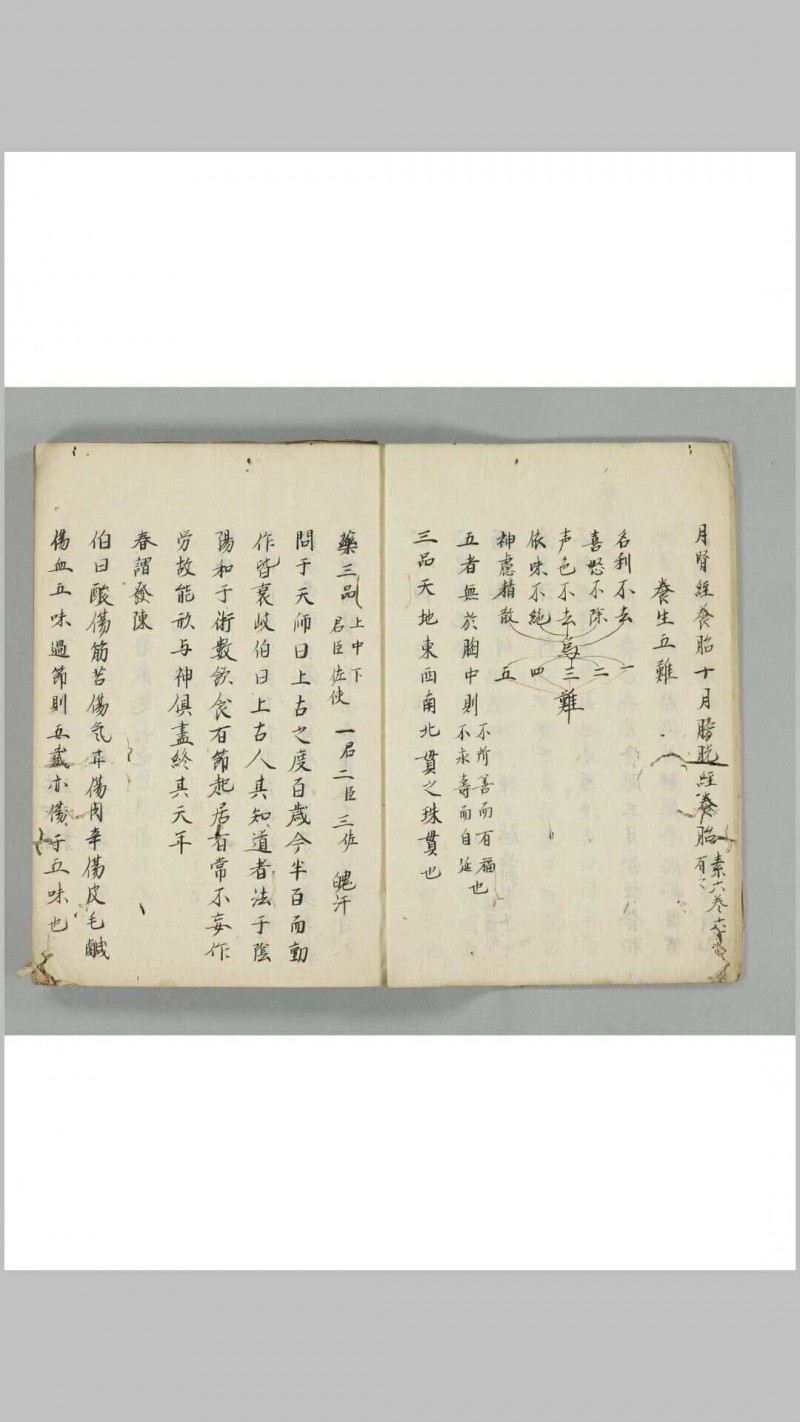 月腎經養胎十月膀胱經養胎
素六卷
有之
養生五難
名利不去 一
喜怒不除 二
声色不去為三難
依味不絶 四
神慮精散 五
五者無於胸中則
不所善而有福也
不永壽而自延
三品天地東西南北貫之珠貫也
藥三品
上中下
君臣佐使
一君二臣三佐
問于天師曰上古之度百歳今半百而動
作皆衰岐伯曰上古人其知道者法于陰
陽和于術數飲食有節起居有常不妄作
労故能形与神倶盡終其天年
春謂發陳
伯曰酸傷筋苦傷気甘傷肉辛傷皮毛鹹
傷血五味過節則五蔵亦傷于五味也